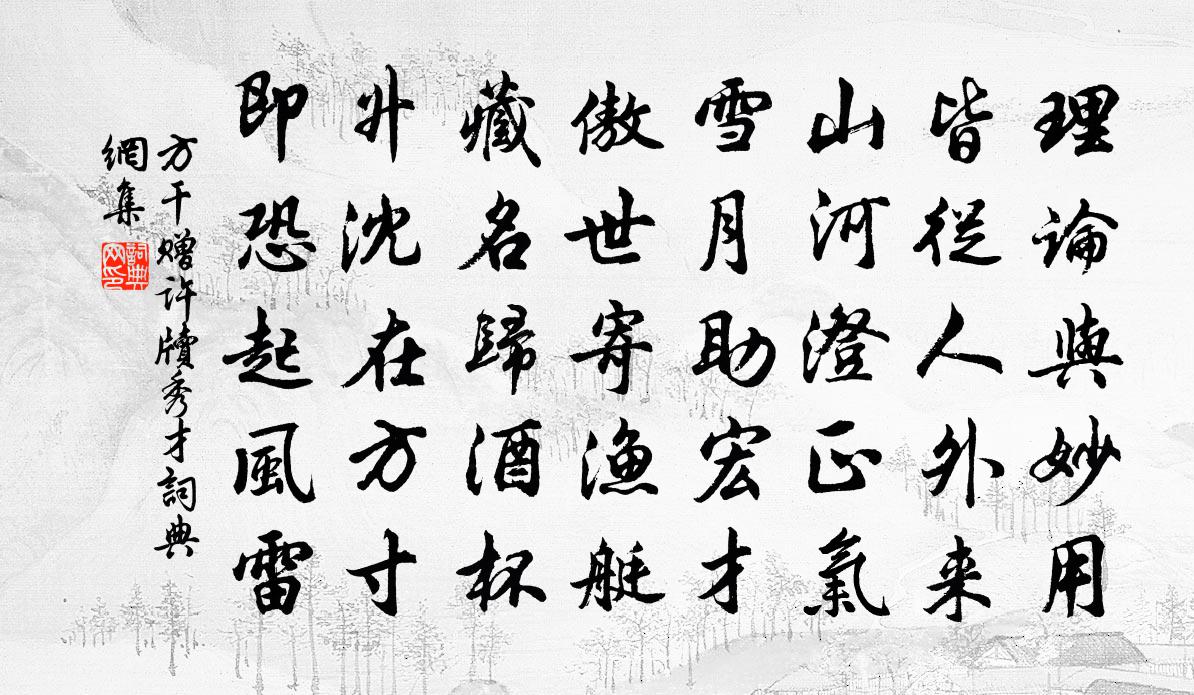 理論與妙用
皆從人外来
山河澄正氣
雪月助宏才
傲世寄漁艇
藏名歸酒杯
升沈在方寸
即恐起風雷
方干贈許牘秀才詞典
網集
詞典
网印